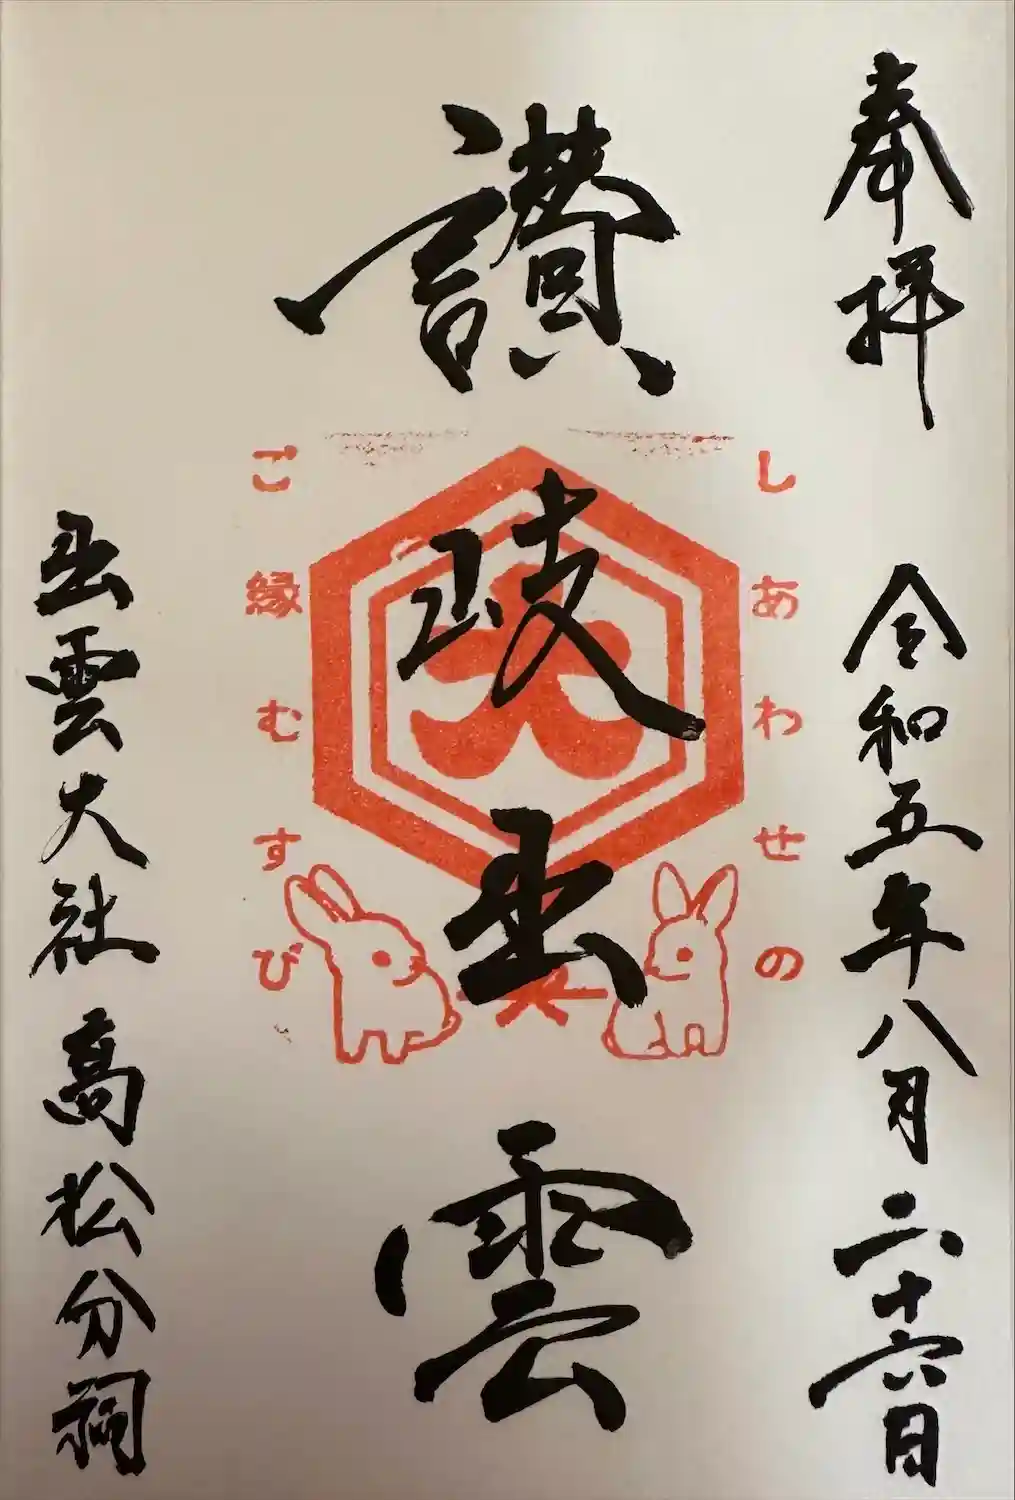 奉拝
令和五年八月二十六日
しあわせの
讃岐出雲
ご縁むすび
出雲大社高松分祠